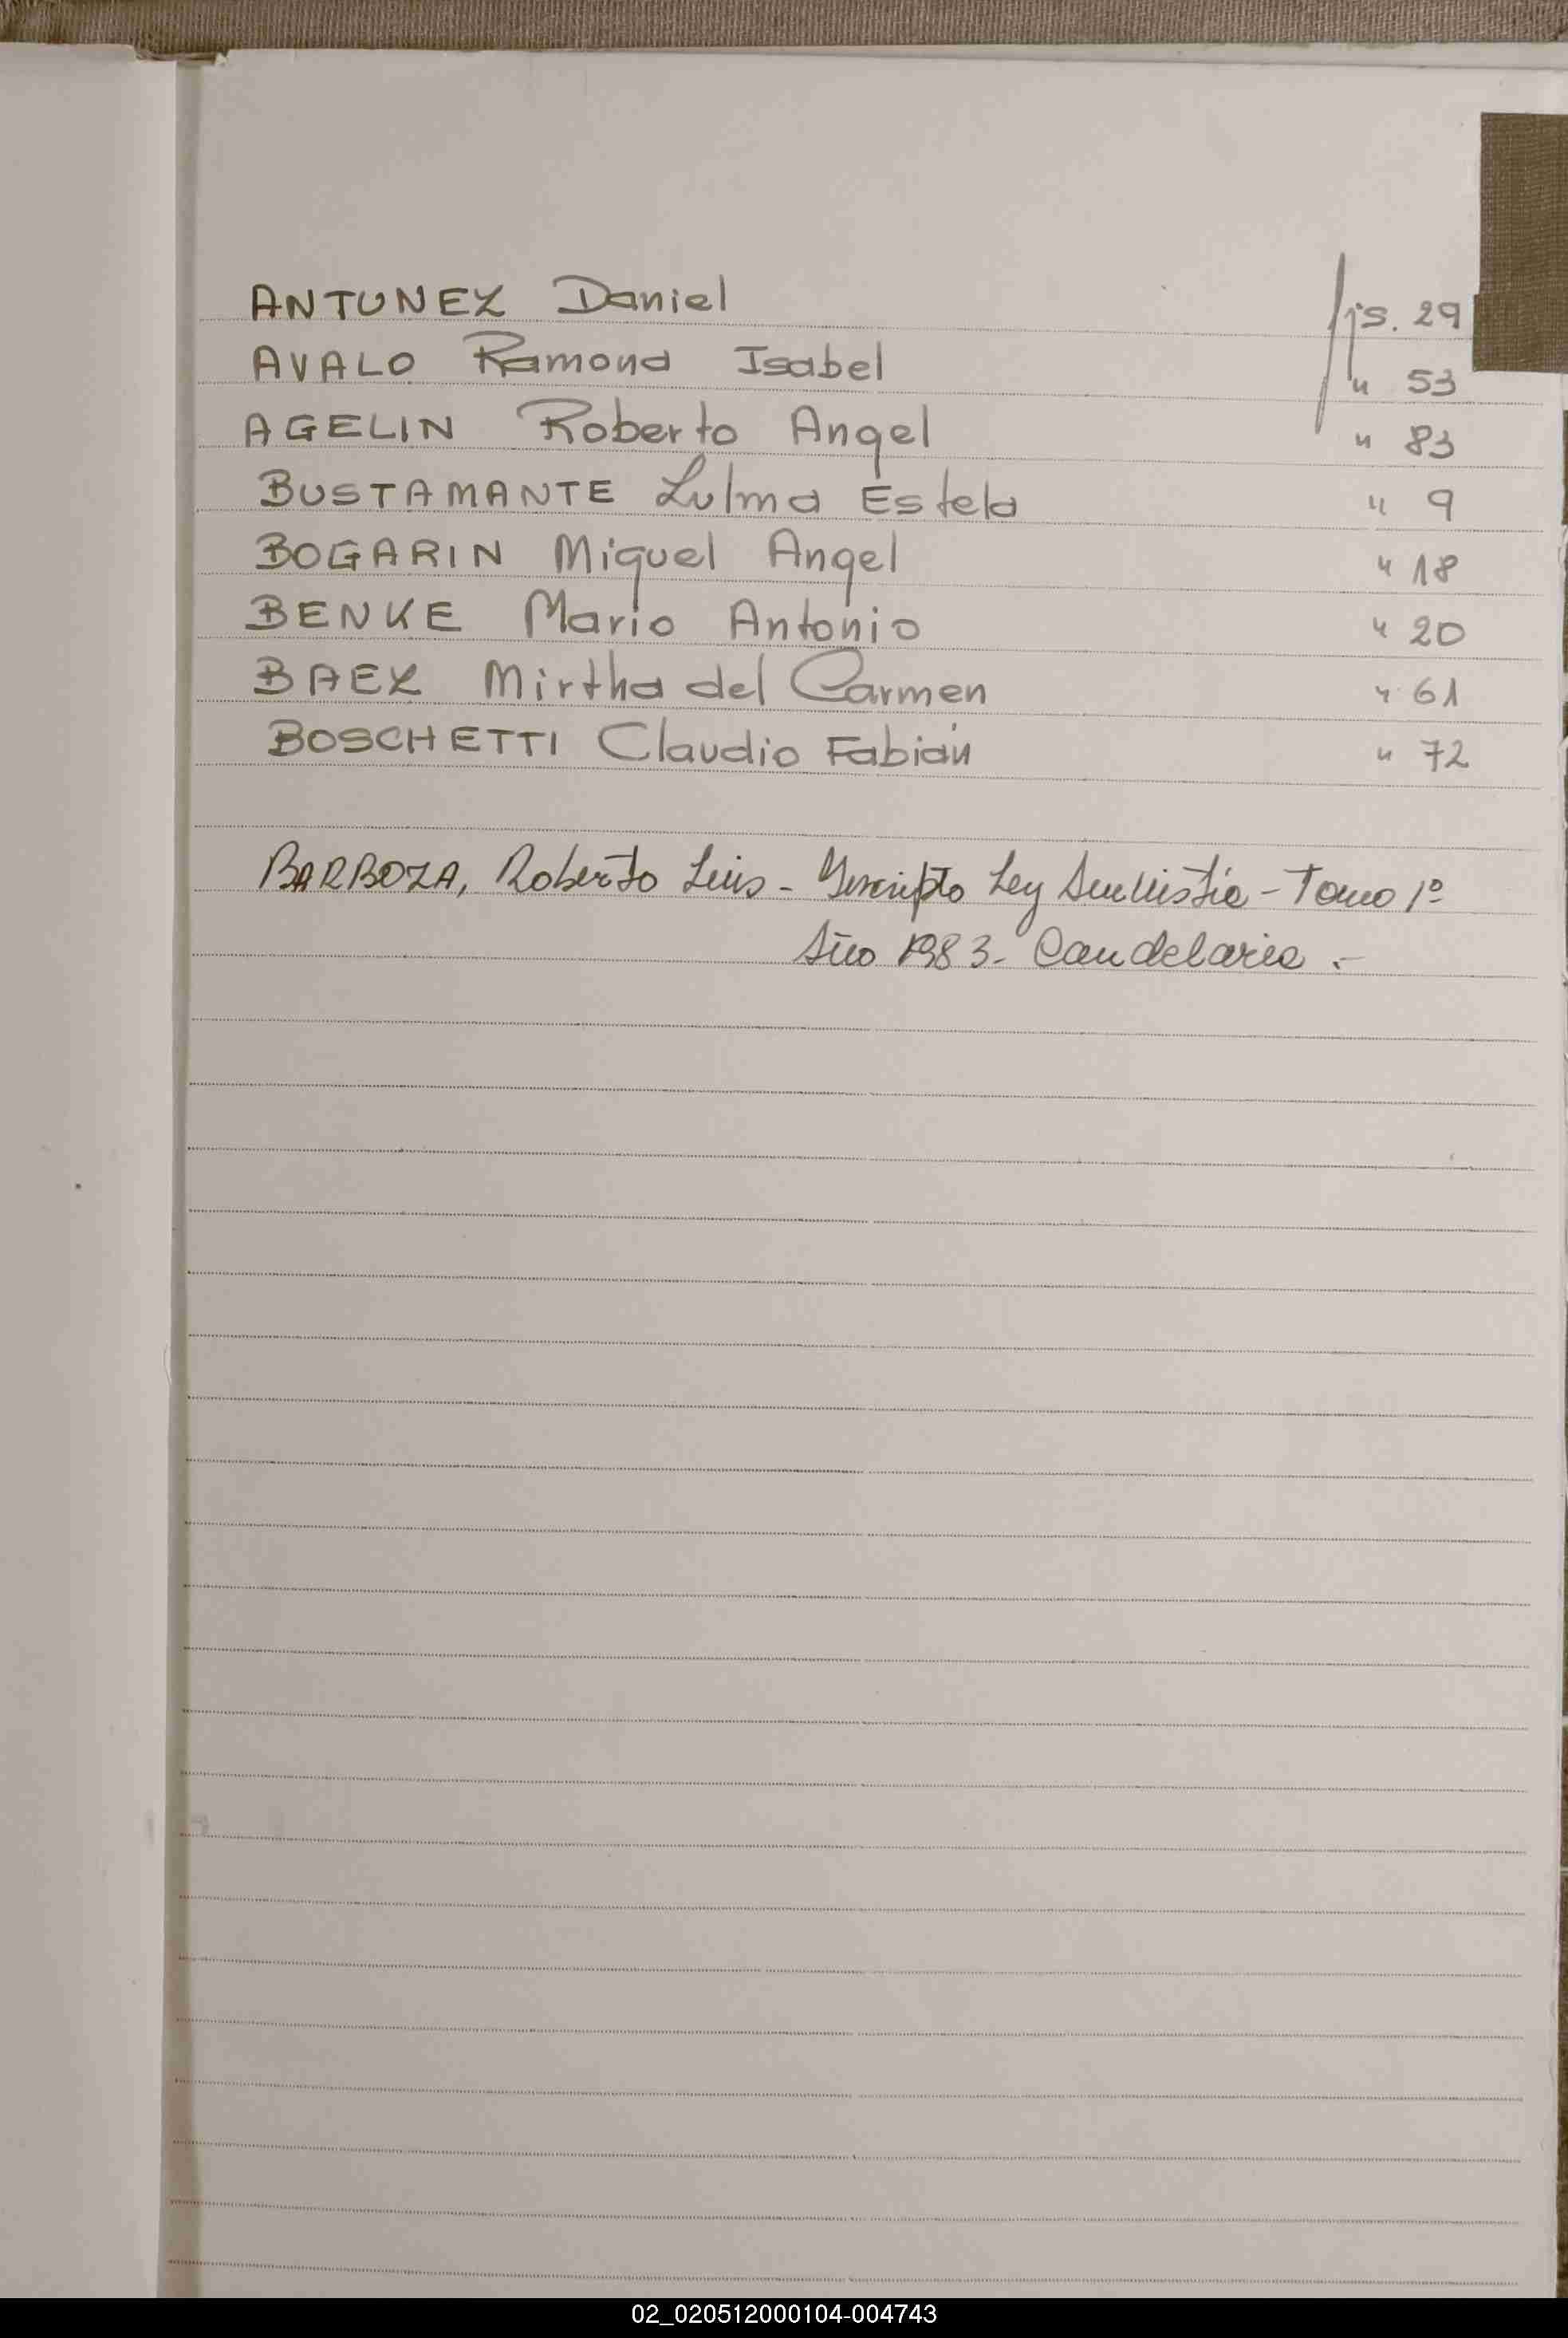 ANTUNEZ Daniel fjs. 29
AVALO Ramona Isabel " 53
AGELIN Roberto Angel " 83
BUSTAMANTE Zulma Estela " 9
BOGARIN Miguel Angel " 18
BENKE Mario Antonio " 20
BAEZ Mirtha del Carmen " 61
BOSCHETTI Claudio Fabián " 72
BARBOZA, Roberto Luis - Inscripto Ley Amnistía - Tomo 1º
Año 1983- Candelaria .-
02_020512000104-004743